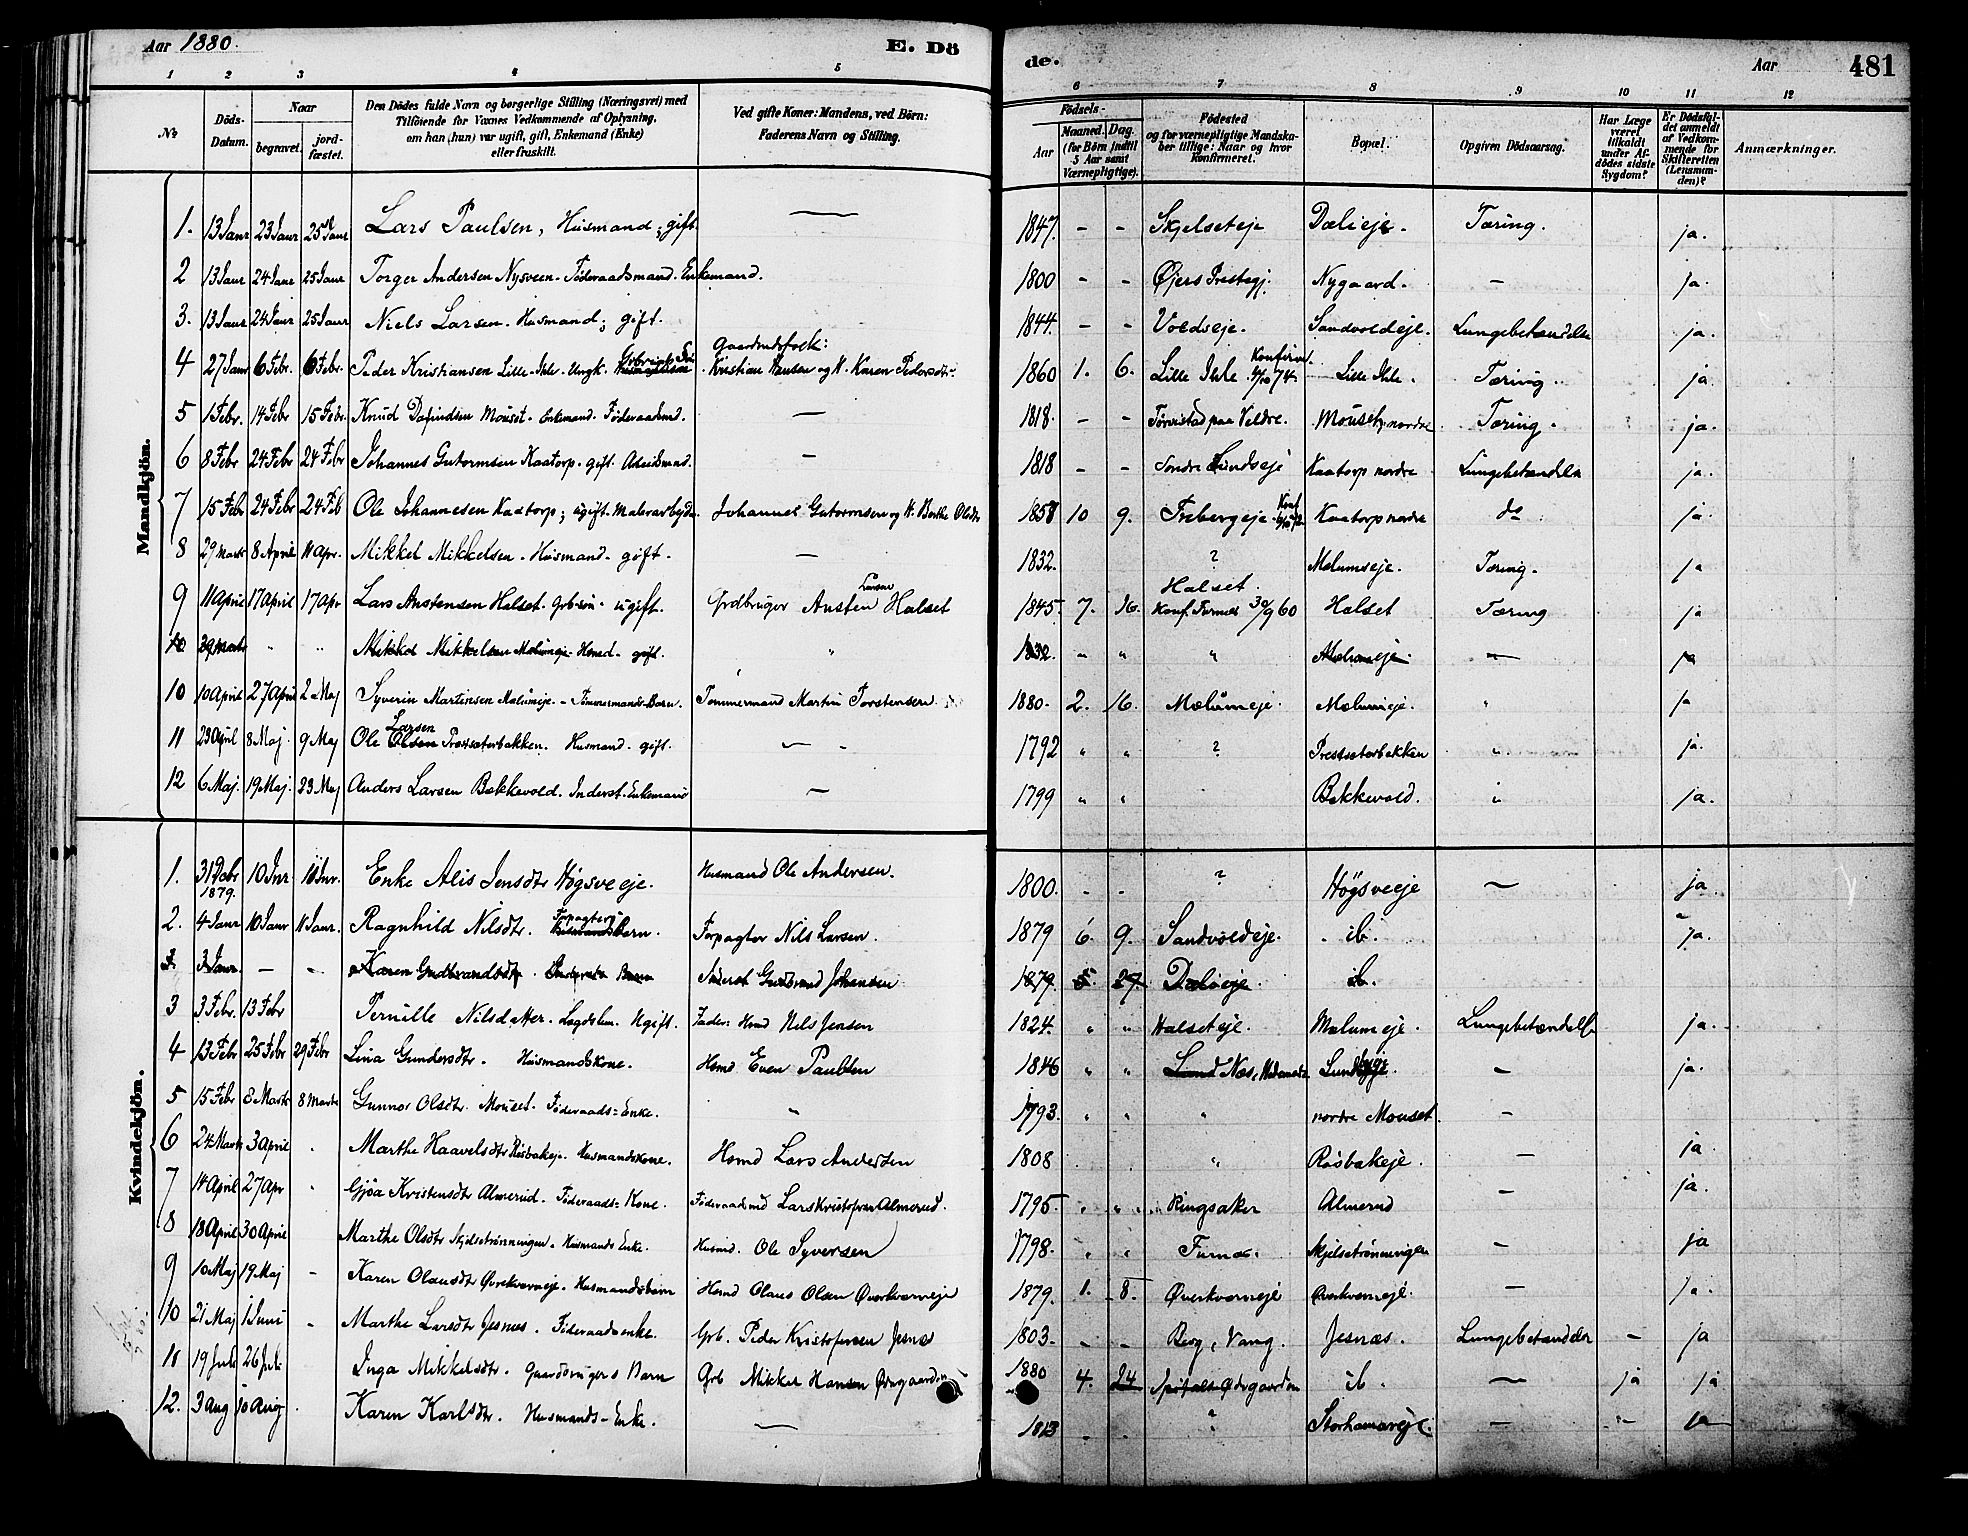 Aar 1880.
E. Dö
de.
Aar
481
1 2 3 4 5
6 7 8 9 10 11 12
No
Döds-Datum.
Naar
begravet.
jordfæstet.
Den Dödes fulde Navn og borgerlige Stilling (Næringsvei) med
Tilföiende for Voxnes Vedkommende af Oplysning,
om han (hun) var ugift, gift, Enkemand (Enke)
eller fraskilt.
Ved gifte Koner: Mandens, ved Börn:
Faderens Navn og Stilling.
Födsels-
Aar
Maaned. Dag.
(for Börn indtil
5 Aar samt
Værnepligtige).
Födested
og for værnepligtige Mandskaber tillige: Naar og hvor
konfirmeret.
Bopæl.
Opgiven Dödsaarsag.
Har Læge
været
tilkaldt
under Afdödes sidste
Sygdom?
Er Dödsfaldet anmeldt
af Vedkommende for
Skifteretten
(Lensmanden)?
Anmærkninger.
Mandkjön.
1. 13 Janr 23 Janr 25 Janr Lars Paulsen, Husmand; gift. — 1847. - - Skjelseteje Dælieje. Tæring. ja.
2 13 Janr 24 Janr 25 Janr Torger Andersen Nysveen. Föderaadsmand. Enkemand. 1800 - - Øjers Prestegj. Nygaard. — ja.
3. 13 Janr 24 Janr 25 Janr Niels Larsen. Husmand; gift. 1844. - - Voldseje. Sandvoldeje. Lungebetændelse ja.
4 27 Janr 6 Febr. 6 Febr. Peder Kristiansen Lille-Ihle. Ungk. Gaardmdsfolk: Kristian Hansen og K. Karen Pedersdtr. 1860 1. 6. Lille Ihle. Konfirm. 74. Lille Ihle. Tæring. ja
5 1 Febr. 14 Febr 15 Febr. Knud Mouset. Enkemand. Föderaadsmd. — 1818. - - paa Veldre. Mouset, nordre Tæring. ja.
6 8 Febr 24 Febr 24 Febr Johannes Gutormsen Kaatorp. gift. Arbeidsmd. — 1818 - - Söndre Lundseje Kaatorp nordre Lungebetændelse ja.
7 15 Febr 24 Febr 24 Feb Ole Johannesen Kaatorp; ugift. Malerarbejder. Johannes Gutormsen og K. Berthe Olsdtr 1858 10 9. Frebergeje. Konf. 72 Kaatorp nordre do ja.
8 29 Marts 8 April 11 Apr. Mikkel Mikkelsen. Husmand. gift. — 1832. ? Mælumseje. Tæring. ja
9 11 April 17 April 17 Apr Lars Austensen Halset. Grb.sön. ugift. Grdbruger Austen Larsen Halset 1845. 7. 16. Halset Konf. Furnes 30/9 60 Halset Tæring ja
10 29 Marts " " Mikkel Mikkelsen Mælumeje. Hsmd. gift. " 1832. " " " Mælumeje — ja
10 10 April 27 April 2 Maj Syverin Martinsen Mælumeje. Tömmermands-Barn. Tömmermand Martin Torstensen. 1880. 2. 16. Mælumeje. Mælumeje. " ja
11 29 April 8 Maj. 9 Maj Ole Larsen Olsen Prestsæterbakken. Husmand. gift. — 1792 " " ? Prestsæterbakken " ja.
12 6 Maj. 19 Maj. 23 Maj Anders Larsen Bækkevold. Inderst. Enkemand — 1799 " " Bækkevold. " ja.
Kvindekjön.
1. 31 Decbr 1879. 10 Jnr 11 Jnr. Enke Alis Jensdtr Høgsveeje. Husmand Ole Andersen. 1800. - - ? Høgsveeje — ja.
2. 4 Janr 10 Janr 11 Janr. Ragnhild Nilsdtr. Forpagters Barn. Forpagter Nils Larsen. 1879 6. 9. Sandvoldeje. ib. ja.
3. 3 Janr. — - Karen Gudbrandsdtr. Inderst Barn Inderst Gudbrand Johansen 1879. 5 27. Dælieje. ib.
3 3 Febr. 13 Febr Pernille Nilsdatter. Lægdslem. Ugift. Fader: Hsmd Nels Jensen 1824. " " Halseteje. Mælumeje. Lungebetændelse ja.
4 13 Febr 25 Febr 29 Febr Lina Gundersdtr. Husmandskone. Hsmd Even Paulsen 1846 " " Lund Næs, — ja.
5 15 Febr 8 Marts 8 Marts Gunnor Olsdtr. Mouset. Föderaads-Enke. " 1793. " " " nordre Mouset. —
6 24 Marts 3 April Marthe Haavelsdtr Rösbakeje. Husmandskone. Hsmd Lars Andersen 1808 " Rösbakeje. — ja.
7 14 April 27 Apr Gjöa Kristensdtr Almerud. Föderaads-Kone. Föderaadsmd Lars Kristofersen Almerud. 1795 " " Ringsaker Almerud — ja.
8 18 April 30 April Marthe Olsdtr Skjelsetrønningen. Husmands Enke. Husmd. Ole Syversen 1798. " " Furnæs. Skjelsetrønningen — ja
9 10 Maj 19 Maj - Karen Olausdtr Øvrekværneje. Husmandsbarn Hsmd Olaus Olsen Øverkværneje 1879. 1. 8. Øverkværneje Øverkværneje. — ja.
10 21 Maj 1 Juni - Marthe Larsdtr Jesnes. Föderaadsenke. Grb. Peder Kristofersen Jesnæs 1803. - - Berg, Vang. Jesnæs. Lungebetændelse - ja
11 19 Juli 26 Juli Inga Mikkelsdtr. Gaardbrugers Barn Grb Mikkel Hansen Ødegaarden 1880 4. 24 Ødegaarden ib. — ja ja
12. 3 Aug 10 Aug Karen Karlsdtr. Husmands-Enke. — 1813 - - " Storhamareje. — - ja